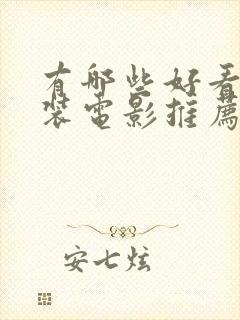 有哪些好看
装电影推薦
安七炫